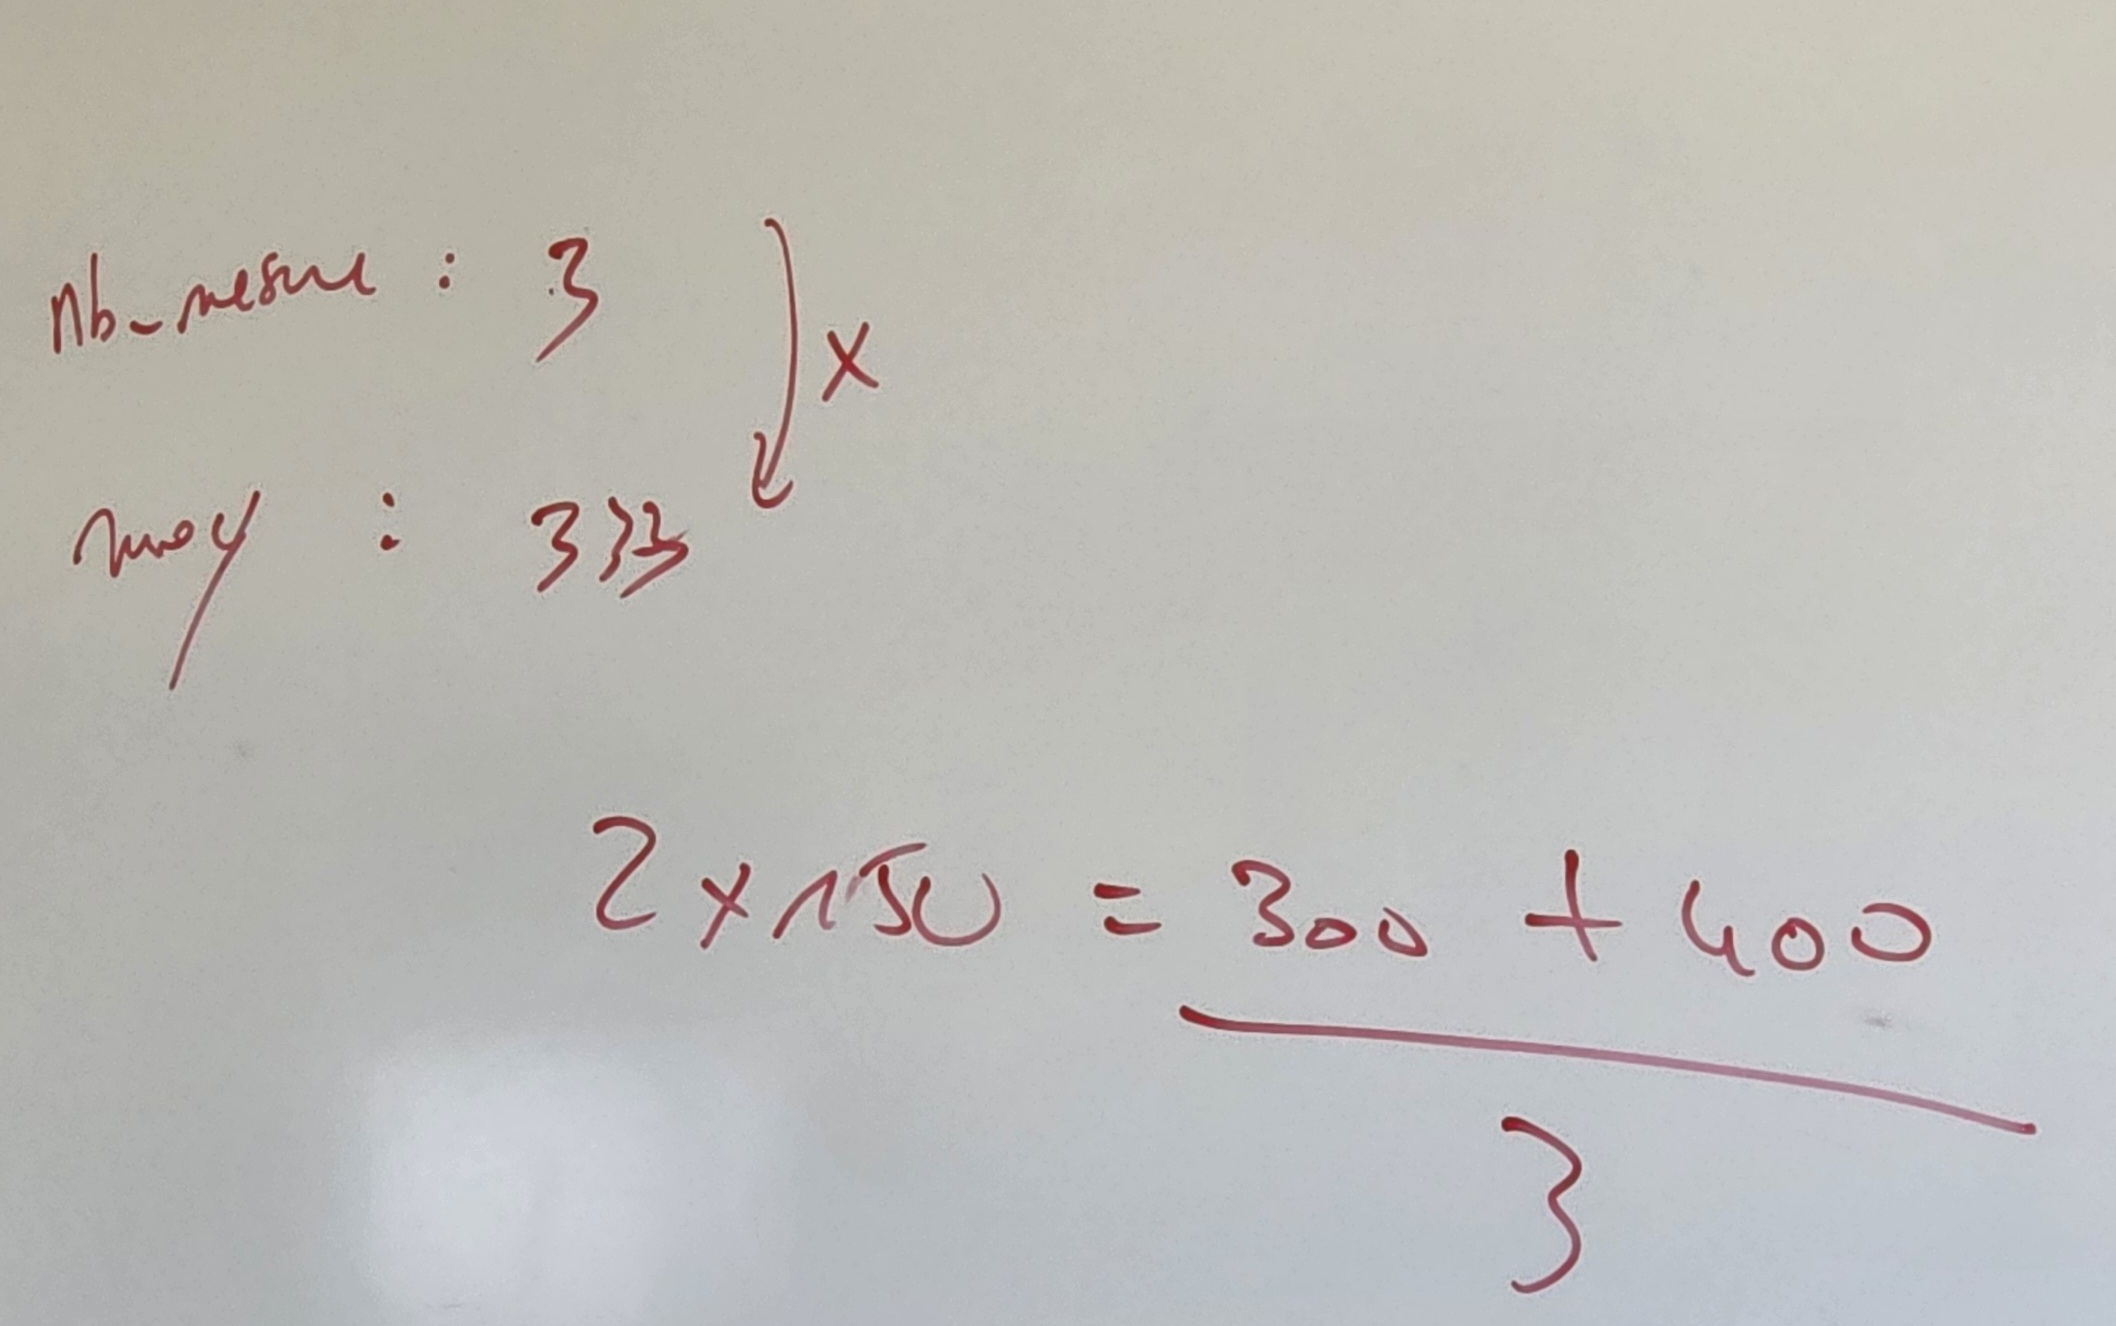 nb_mesure : 3
x
moy : 333
2 x 150 = 300 + 400
3